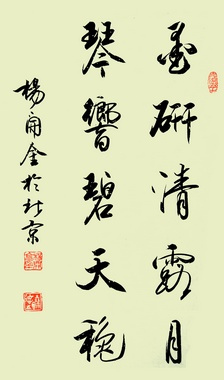 墨研清露月
琴響碧天穐
楊開金於北京